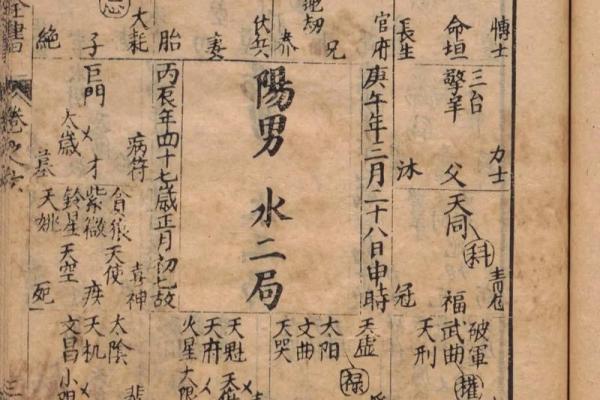 博士
命垣
長生
官府
兄
養
伏兵
妻
胎
大耗
子
絕
三台
擎羊
力士
父
沐
天同
科
福
冠
破軍
武曲
權
天刑
庚午年二月二十八日申時
陽男 水二局
丙辰年四十七歲正月初七故
病符
巨門
才
大歲
墓
貪狼
天使
喜神
紫微
疾
鈴星
天空
天姚
死
天虛
太陽
祿
文曲
天哭
天魁
天府
火星
大限
太陰
天机
文昌
卷之六